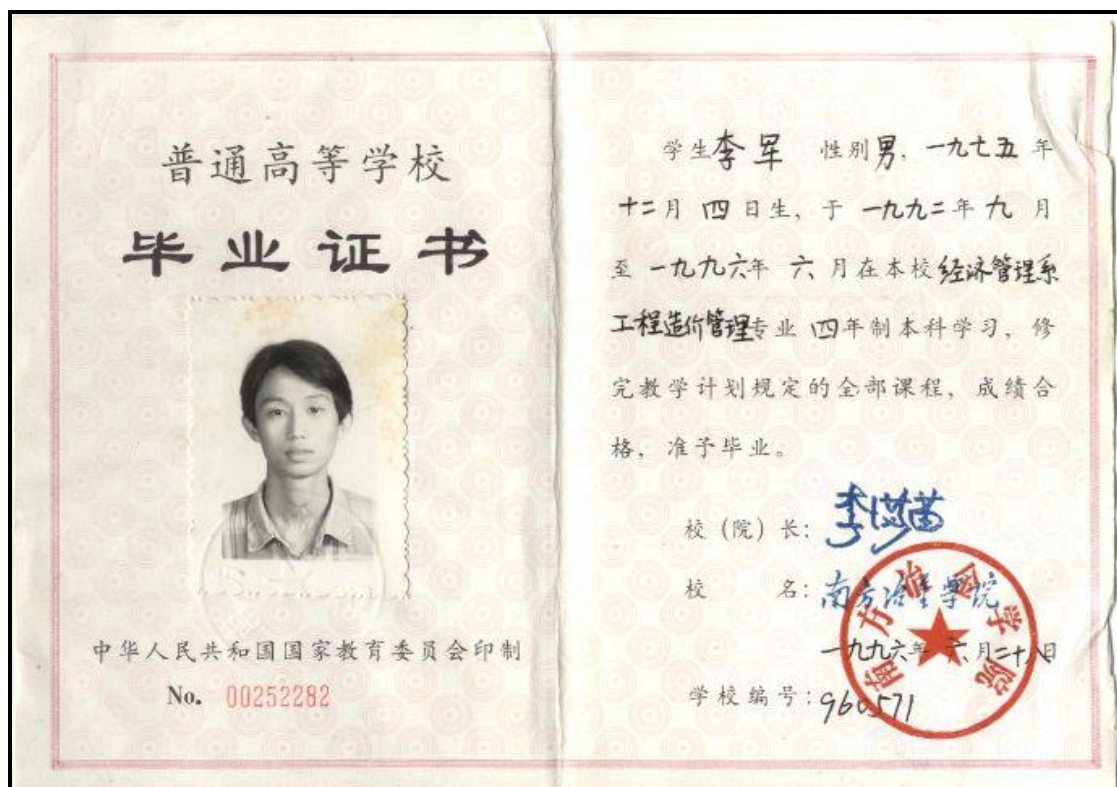 普通高等学校
毕业证书
中华人民共和国国家教育委员会印制
No. 00252282
学生李军 性别男，一九七五年
十二月四日生，于一九九二年九月
至一九九六年六月在本校经济管理系
工程造价管理专业四年制本科学习，修
完教学计划规定的全部课程，成绩合
格，准予毕业。
校（院）长：
校名：南方冶金学院
一九九六年六月二十八日
学校编号：960571
南方冶金学院